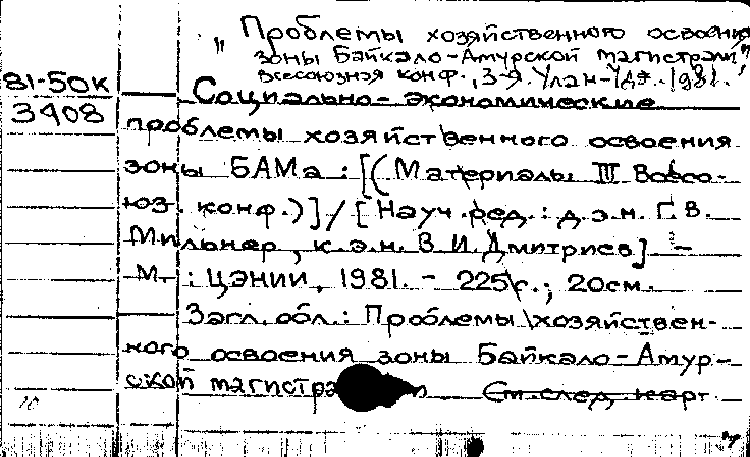 "Проблемы хозяйственного освоения
зоны Байкало-Амурской магистрали",
Всесоюзная конф., 3-я. Улан-Удэ. 1981.
81-50К
3408
Социально-экономические
проблемы хозяйственного освоения
зоны БАМа : [(Материалы III Всесо-
юз. конф.)] / [Науч. ред.: д.э.н. Г.В.
Мильнер, к.э.н. В.И. Дмитриев] -
М. : ЦЭНИИ, 1981. - 225 с.; 20 см.
Загл. обл.: Проблемы хозяйствен-
ного освоения зоны Байкало-Амур-
ской См. след. карт.
10